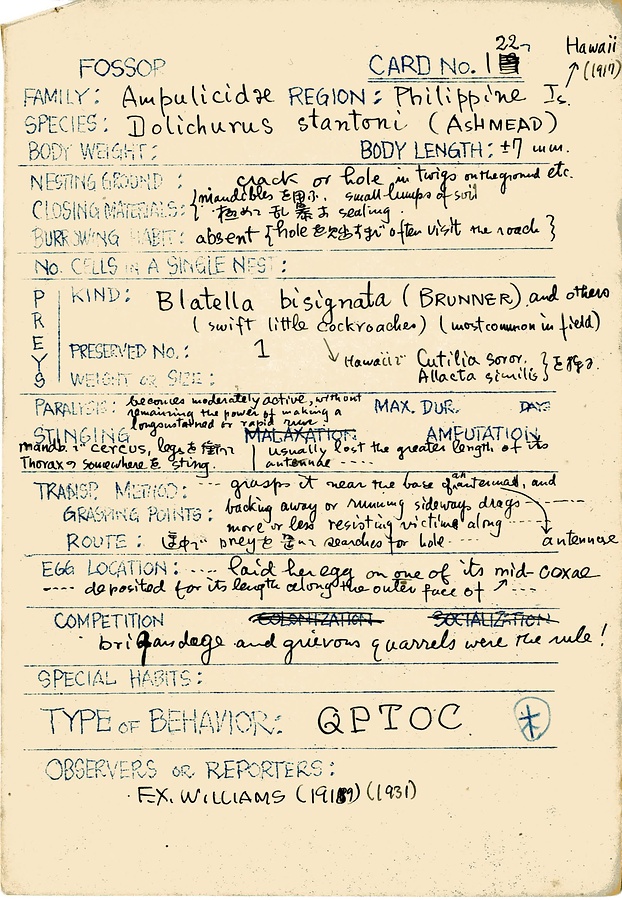 22-
Hawaii
(1917)
FOSSOR CARD No. 1
FAMILY: Ampulicidae REGION: Philippine Is.
SPECIES: Dolichurus stantoni (ASHMEAD)
BODY WEIGHT: BODY LENGTH: ±7 mm.
NESTING GROUND: crack or hole in twigs on the ground etc.
CLOSING MATERIALS: { mandibles を用ふ. small lumps of soil
極めて乱暴な sealing.
BURROWING HABIT: absent {hole を often visit the roach }
No. CELLS IN A SINGLE NEST:
PREYS
KIND: Blatella bisignata (BRUNNER) and others
(swift little cockroaches) (most common in field)
PRESERVED No.: 1
Hawaiiで Cutilia soror.
Allacta similis }
WEIGHT OR SIZE:
PARALYSIS: becomes moderately active, without
remaining the power of making a
long sustained or rapid run. MAX. DUR. DAYS
STINGING MALAXATION AMPUTATION
mandb. で cercus, leg を
Thorax の somewhere を sting.
usually lost the greater length of its
antennae ----
TRANSP. METHOD: --- grasps it near the base of an antenna, and
GRASPING POINTS: backing away or running sideways drags -----
more or less resisting victim along ----
antennae
ROUTE: prey を searches for hole ----
EGG LOCATION: ---- laid her egg on one of its mid-coxae
---- deposited for its length along the outer face of ---
COMPETITION COLONIZATION SOCIALIZATION
brigandage and grievous quarrels were the rule!
SPECIAL HABITS:
TYPE OF BEHAVIOR: QPTOC
OBSERVERS OR REPORTERS:
F.X. WILLIAMS (1919) (1931)